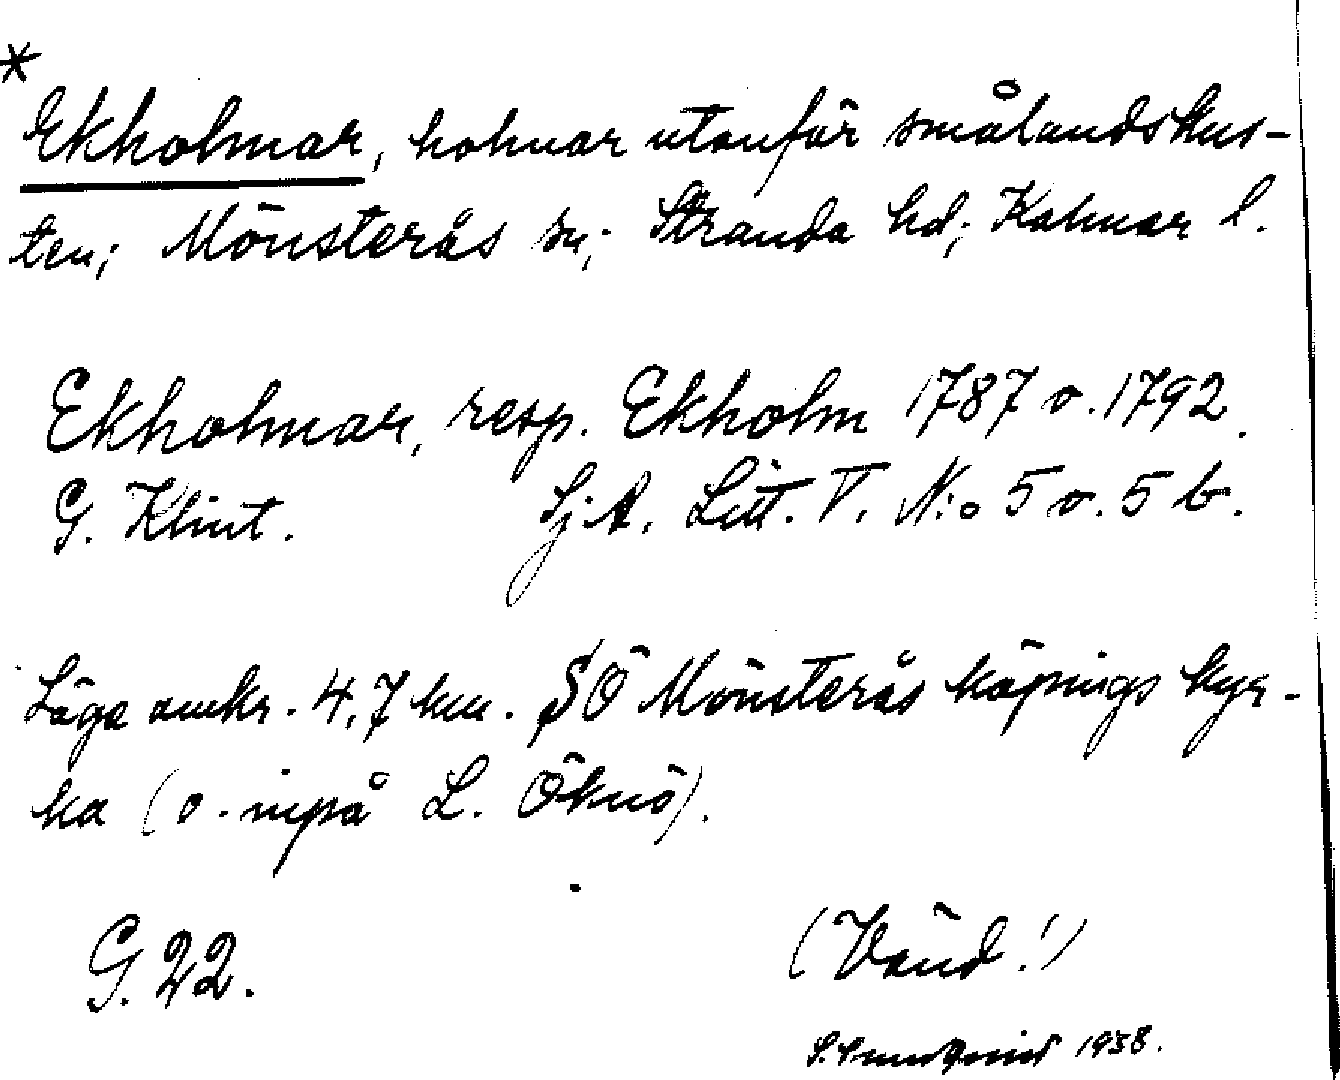 *
Ekholmar, holmar utanför smålandskus-
ten; Mönsterås sn; Stranda hd; Kalmar l.
Ekholmar, resp. Ekholm 1787 o. 1792.
G. Klint. Sj.A. Litt. V. N:o 5 o. 5 b.
Läge omkr. 4,7 km. SÖ Mönsterås köpings kyr-
ka (o. inpå L. Öknö).
G. 22. (Vänd!)
1938.